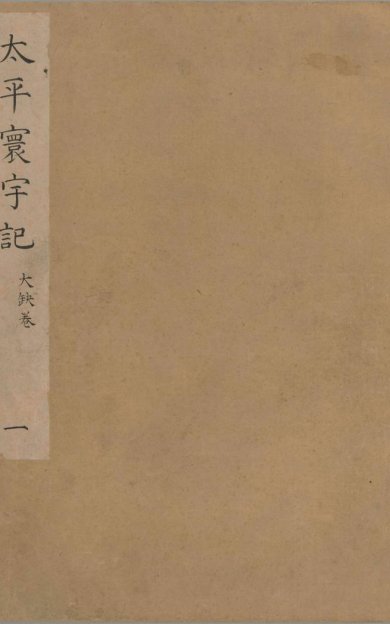 太平寰宇記
大缺卷
一